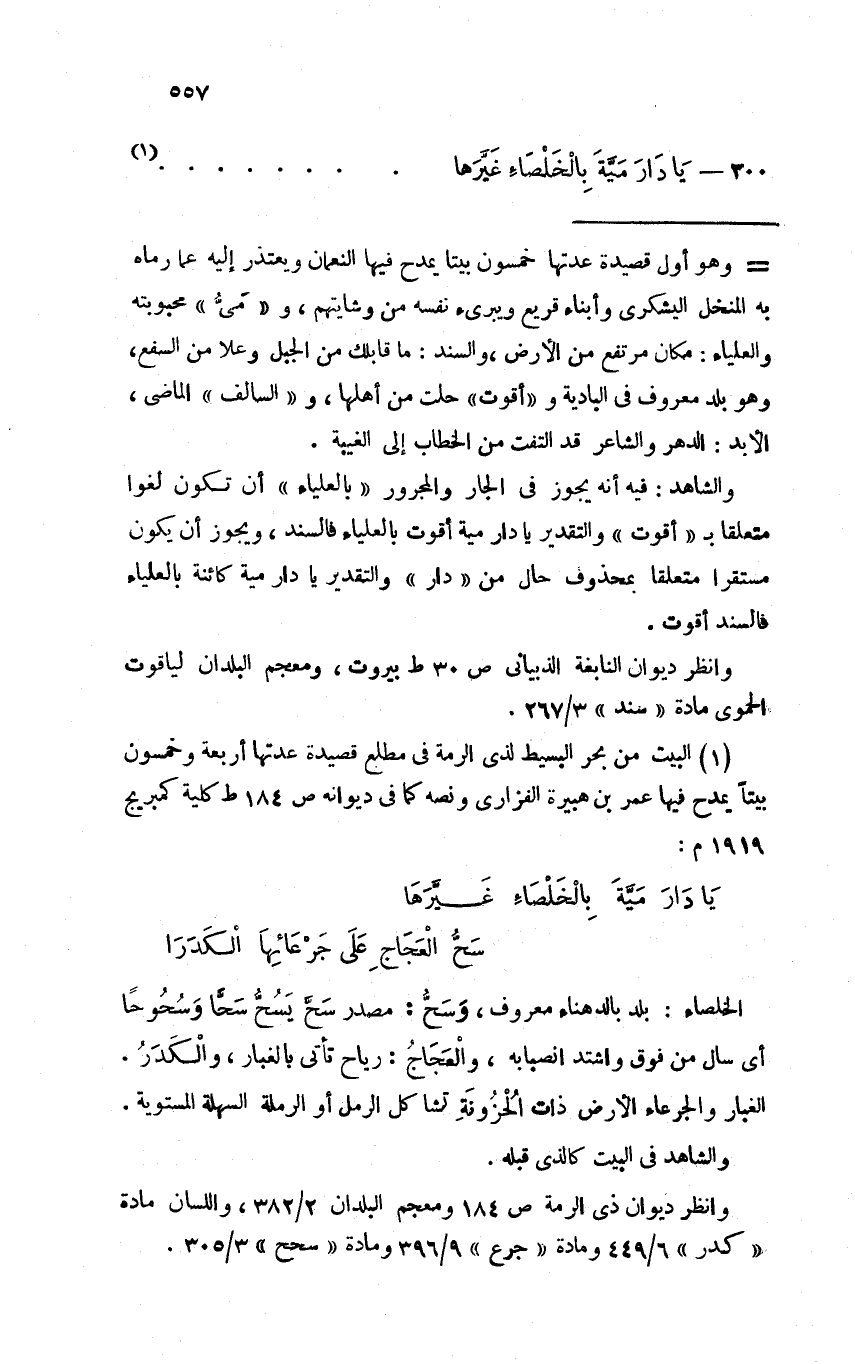 ٥٥٧
٣٠٠ — يَا دَارَ مَيَّةَ بِالْخَلْصَاءِ غَيَّرَها . . . . . . . . .(١)
= وهو أول قصيدة عدتها خمسون بيتا يمدح فيها النعمان ويعتذر إليه عما رماه
به المنخل اليشكرى وأبناء قريع ويبرىء نفسه من وشايتهم ، و « مَىُّ » محبوبته
والعلياء : مكان مرتفع من الأرض ، والسند : ما قابلك من الجبل وعلا من السفع ،
وهو بلد معروف فى البادية و «أقوت» حلت من أهلها ، و « السالف » الماضى ،
الأبد : الدهر والشاعر قد التفت من الخطاب إلى الغيبة .
والشاهد : فيه أنه يجوز فى الجار والمجرور « بالعلياء » أن تكون لغوا
متعلقا بـ « أقوت » والتقدير يا دار مية أقوت بالعلياء فالسند ، ويجوز أن يكون
مستقرا متعلقا بمحذوف حال من « دار » والتقدير يا دار مية كائنة بالعلياء
فالسند أقوت .
وانظر ديوان النابغة الذبيانى ص ٣٠ ط بيروت ، ومعجم البلدان لياقوت
الحموى مادة « سند » ٢٦٧/٣ .
(١) البيت من بحر البسيط لذى الرمة فى مطلع قصيدة عدتها أربعة وخمسون
بيتاً يمدح فيها عمر بن هبيرة الفزارى ونصه كما فى ديوانه ص ١٨٤ ط كلية كمبريج
١٩١٩ م :
يَا دَارَ مَيَّةَ بِالْخَلْصَاءِ غَـيَّرَهَا
سَحُّ الْعَجَاجِ عَلَى جَرْعَائِهَا الْـكَدَرَا
الخلصاء : بلد بالدهناء معروف ، وَسَحُّ : مصدر سَحَّ يَسُحُّ سَحًّا وَسُحُوحًا
أى سال من فوق واشتد انصبابه ، والْعَجَاجُ : رياح تأتى بالغبار ، والْـكَدَرُ .
الغبار والجرعاء الأرض ذات الْحُزُونَةِ تشاكل الرمل أو الرملة السهلة المستوية .
والشاهد فى البيت كالذى قبله .
وانظر ديوان ذى الرمة ص ١٨٤ ومعجم البلدان ٣٨٢/٢ ، واللسان مادة
« كدر » ٤٤٩/٦ ومادة « جرع » ٣٩٦/٩ ومادة « سحح » ٣٠٥/٣ .